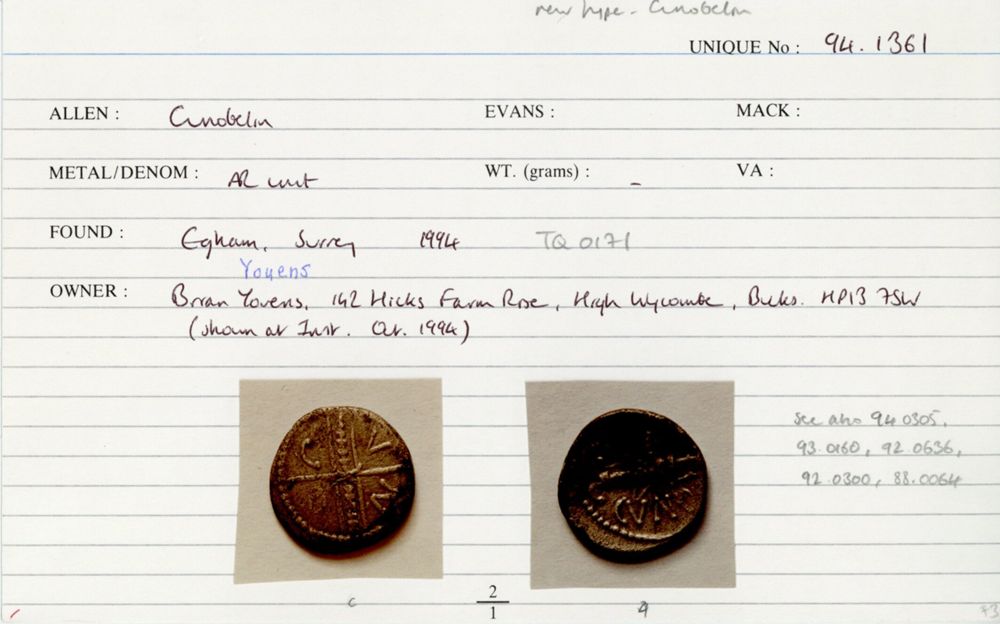 new type - Cunobelin
UNIQUE No : 94.1361
ALLEN : Cunobelin EVANS : MACK :
METAL/DENOM : AR unit WT. (grams) : - VA :
FOUND : Egham, Surrey 1994 TQ 0171
Youens
OWNER : Brian Yovens, 142 Hicks Farm Rise, High Wycombe, Bucks. HP13 7SW
(shown at Inst. Oct. 1994)
see also 94.0305,
93.0160, 92.0636,
92.0300, 88.0064
C V
CVNO
c 2/1 9